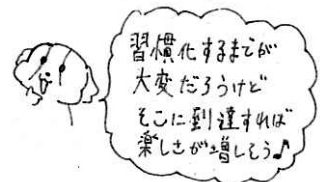 習慣化するまでが
大変だろうけど
そこに到達すれば
楽しさが増しそう♪